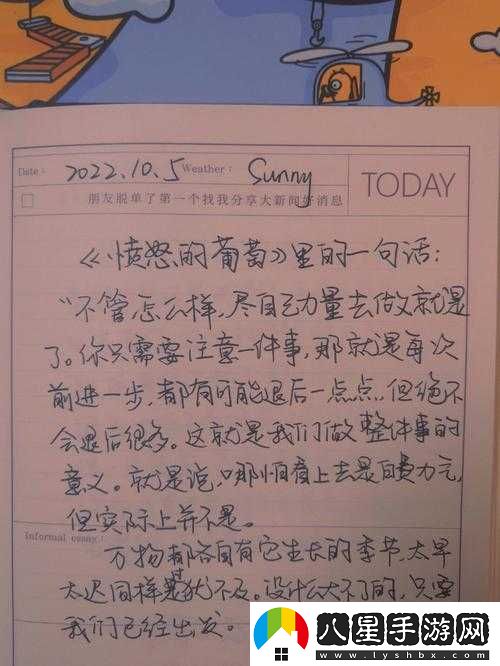 Date: 2022.10.5 Weather: Sunny
TODAY
朋友脱单了第一个找我分享大新闻好消息
《愤怒的葡萄》里的一句话:
“不管怎么样,尽自己力量去做就是
了。你只需要注意一件事,那就是每次
前进一步,都有可能退后一点点,但绝不
会退后很多。这就是我们做整件事的
意义。就是说,哪怕看上去是白费力气,
但实际上并不是。
Informal essay:
万物都各自有它生长的季节,太早
太迟同样是过犹不及。没什么大不了的,只要
我们已经出发。
八星手游网
www.lyshbx.com